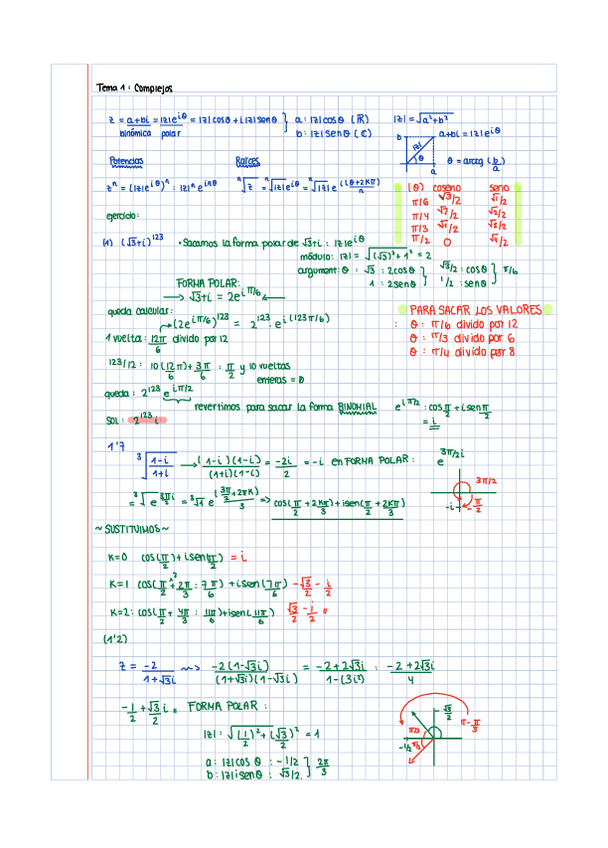 Tema 1: Complejos
z = a+bi = |z|e^{iθ} = |z|cosθ + i|z|senθ } a: |z|cosθ (ℝ)
binómica polar b: |z|senθ (ℂ)
|z| = √(a²+b²)
b |z| θ a
a+bi = |z|e^{iθ}
θ = arcag (b/a)
Potencias Raíces
z^n = (|z|e^{iθ})^n : |z|^n e^{inθ} ⁿ√z = ⁿ√|z|e^{iθ} = ⁿ√|z| e^{i(θ+2Kπ)/n}
(θ) coseno seno
π/6 √3/2 √1/2
π/4 √2/2 √2/2
π/3 √1/2 √3/2
π/2 0 √4/2
ejercicio:
(1) (√3+i)^123 • Sacamos la forma polar de √3+i : |z|e^{iθ}
módulo: |z| = √((√3)²+1²) = 2
argument: θ : √3 : 2cosθ } √3/2 : cosθ } π/6
1 : 2senθ 1/2 : senθ
FORMA POLAR:
→ √3+i = 2e^{iπ/6} ←
queda calcular:
→ (2e^{iπ/6})^123 = 2^123 · e^{i(123π/6)}
PARA SACAR LOS VALORES
: θ : π/6 divido por 12
θ : π/3 divido por 6
θ : π/4 divido por 8
1 vuelta: 12π/6 divido por 12
123/12 : 10(12π/6) + 3π/6 : π/2 y 10 vueltas
enteras = 0
queda: 2^123 e^{iπ/2}
revertimos para sacar la forma BINOMIAL e^{iπ/2} : cos π/2 + i sen π/2
= i
SOL: 2^123 i
1'7
³√((1-i)/(1+i)) → (1-i)(1-i)/((1+i)(1-i)) = -2i/2 = -i en FORMA POLAR: e^{3π/2 i}
3π/2
-i -π/2
= ³√(e^{3π/2 i}) = ³√1 e^{(3π/2+2πK)/3} => cos(π/2 + 2Kπ/3) + isen(π/2 + 2Kπ/3)
~ SUSTITUIMOS ~
K=0 cos(π/2) + isen(π/2) = i
K=1 cos(π/2 + 2π/3 : 7π/6) + isen(7π/6) -√3/2 - i/2
K=2: cos(π/2 + 4π/3 : 11π/6) + isen(11π/6) √3/2 - i/2 "
(1'2)
z = -2/(1+√3i) ⇝ -2(1-√3i)/((1+√3i)(1-√3i)) = (-2+2√3i)/(1-(3i²)) : (-2+2√3i)/4
-1/2 + √3/2 i = FORMA POLAR:
|z| : √((1/2)² + (√3/2)²) = 1
a: |z|cosθ : -1/2 } 2π/3
b: |z|isenθ : √3/2.
√3/2
π-π/3
π/3
-1/2 π/3